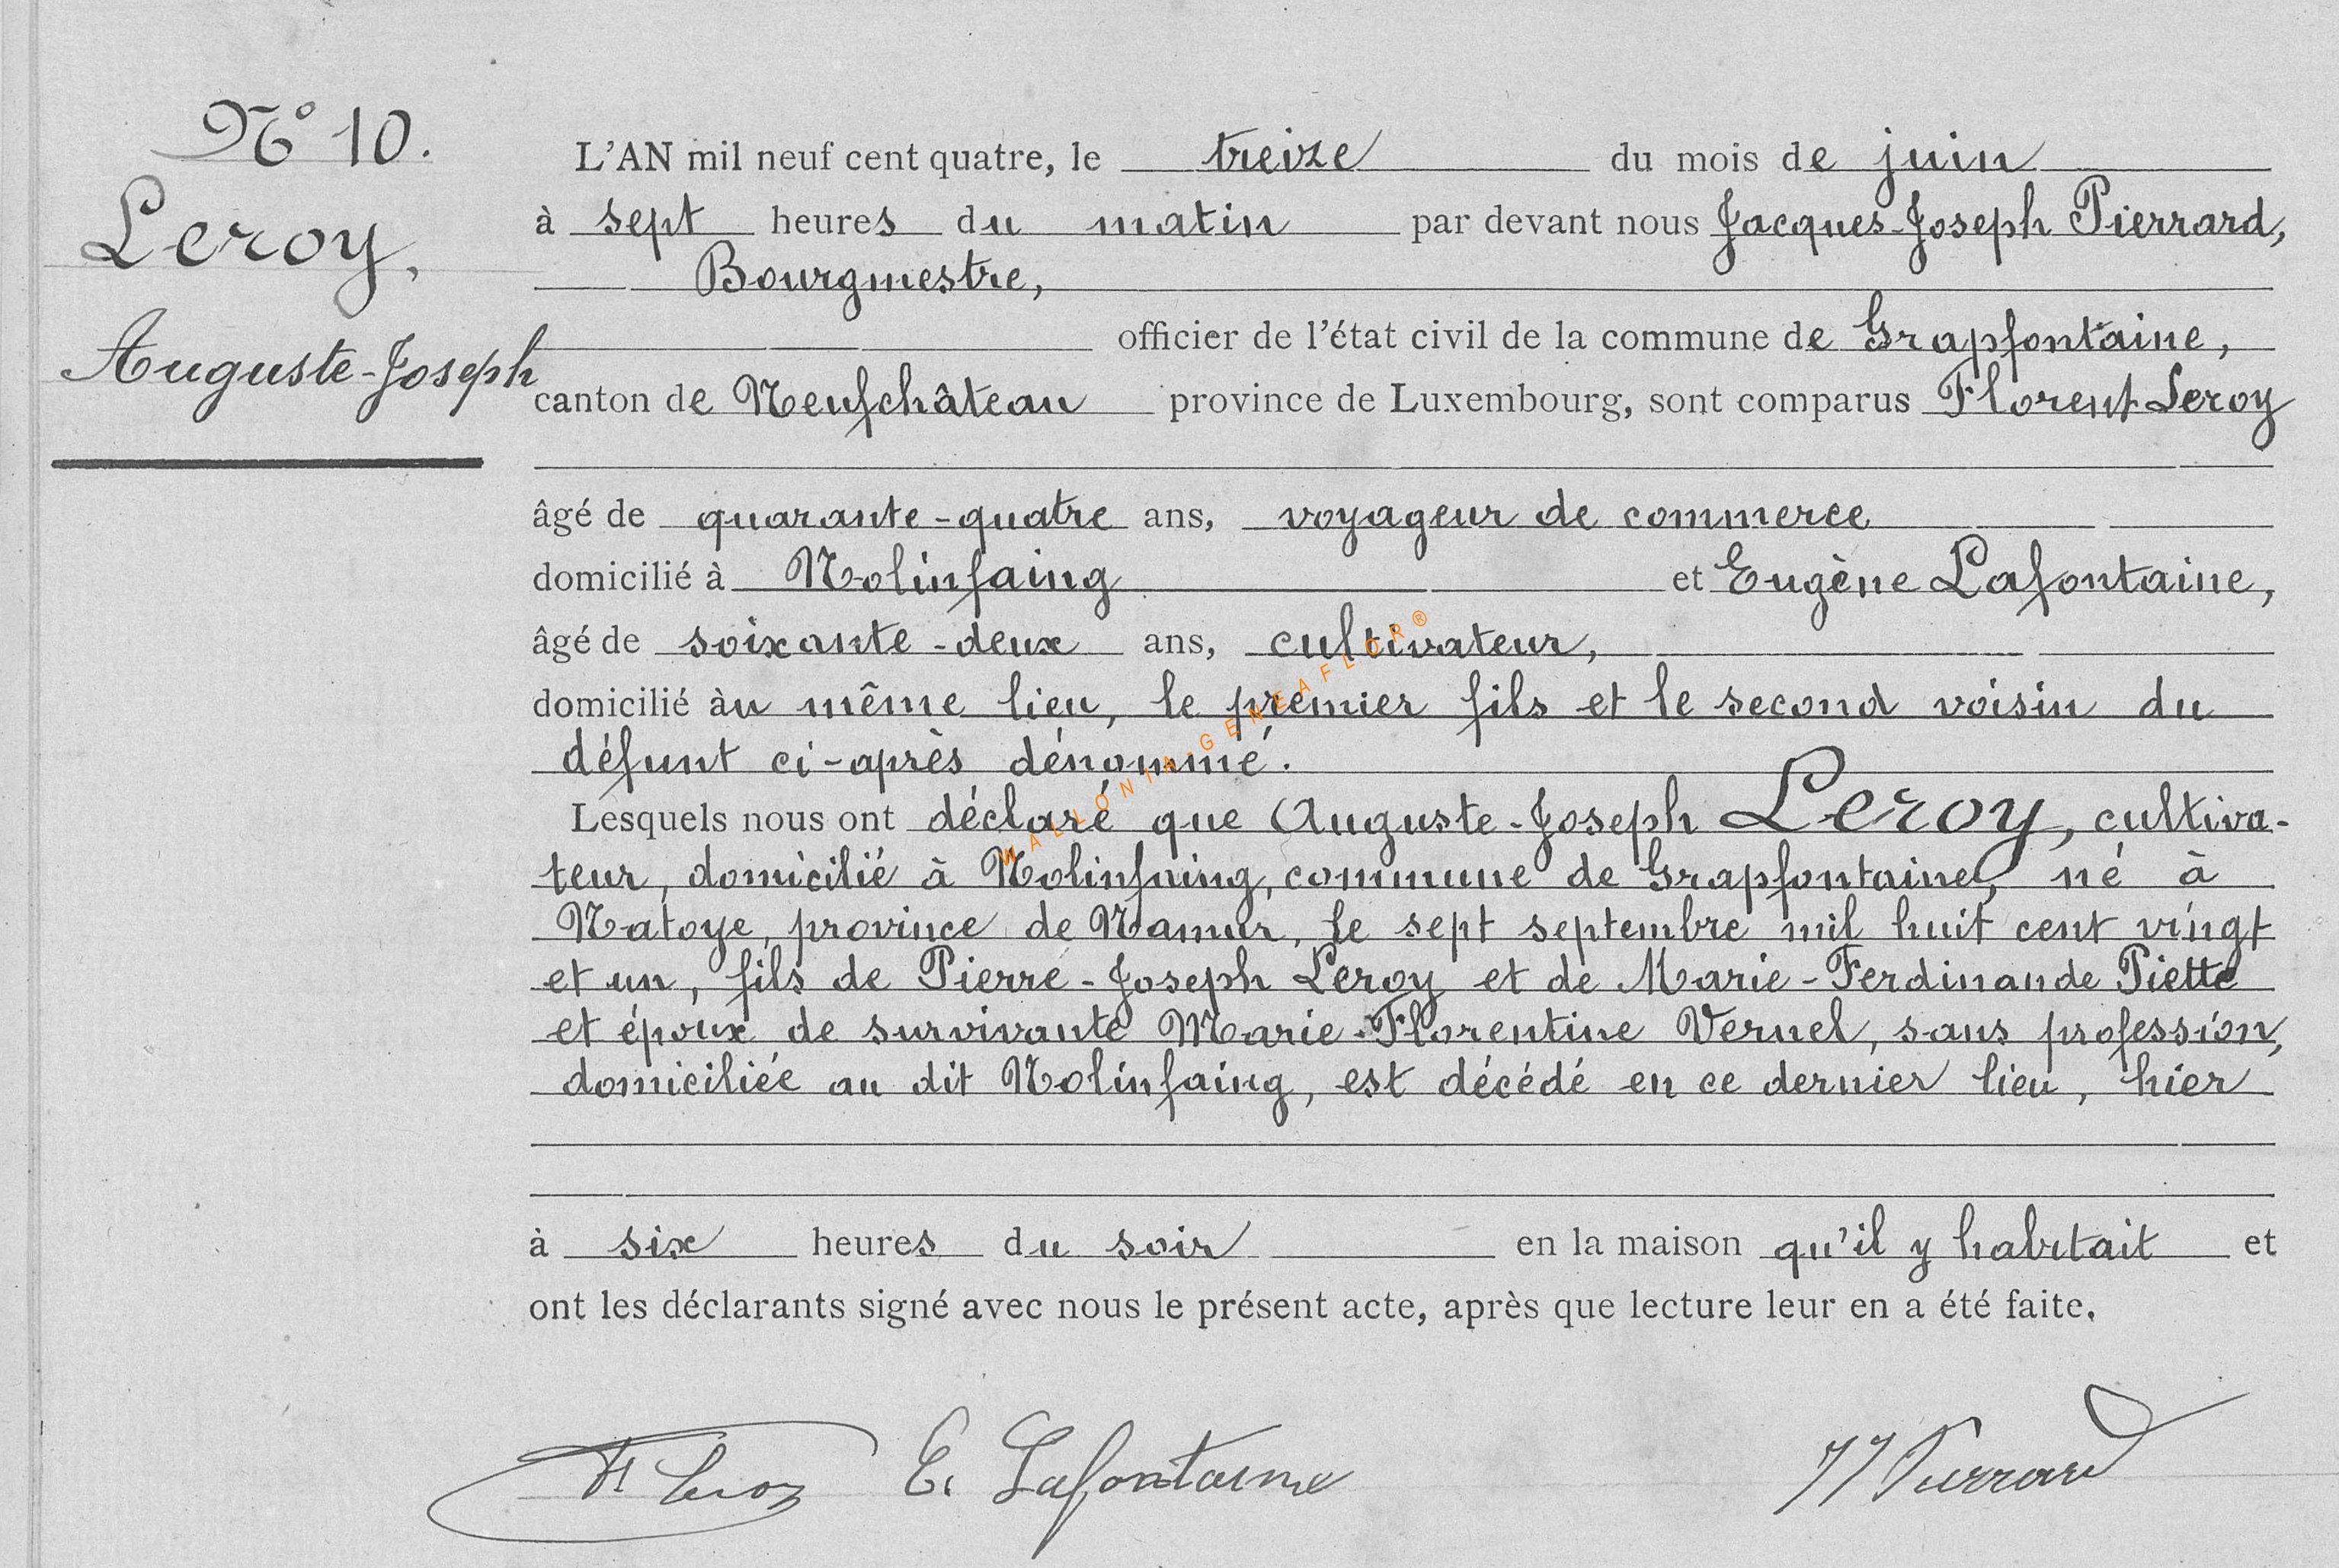 N° 10.
Leroy,
Auguste-Joseph
L'AN mil neuf cent quatre, le treize du mois de juin
à sept heures du matin par devant nous Jacques-Joseph Pierrard,
Bourgmestre,
officier de l'état civil de la commune de Grapfontaine,
canton de Neufchâteau province de Luxembourg, sont comparus Florent Leroy
âgé de quarante-quatre ans, voyageur de commerce
domicilié à Nolinfaing et Eugène Lafontaine,
âgé de soixante-deux ans, cultivateur,
domicilié àu même lieu, le premier fils et le second voisin du
défunt ci-après dénommé.
Lesquels nous ont déclaré que Auguste-Joseph Leroy, cultiva-
teur, domicilié à Nolinfaing, commune de Grapfontaine, né à
Natoye, province de Namur, le sept septembre mil huit cent vingt
et un, fils de Pierre-Joseph Leroy et de Marie-Ferdinande Piette
et époux de survivante Marie-Florentine Vernel, sans profession,
domiciliée au dit Nolinfaing, est décédé en ce dernier lieu, hier
à six heures du soir en la maison qu'il y habitait et
ont les déclarants signé avec nous le présent acte, après que lecture leur en a été faite.
Fl Leroy E. Lafontaine JJ Pierrard
WALLONIA-GENEAFLOR®